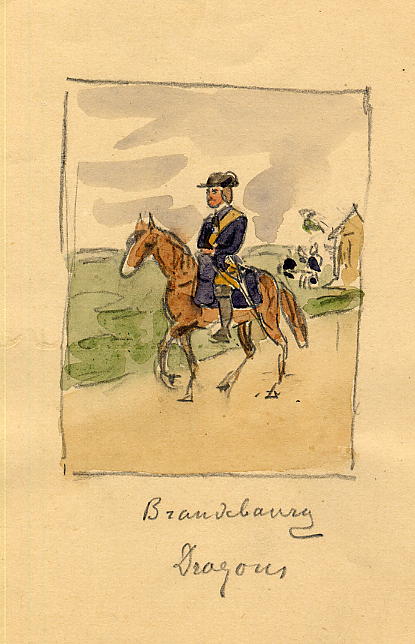 Brandebourg
Dragons